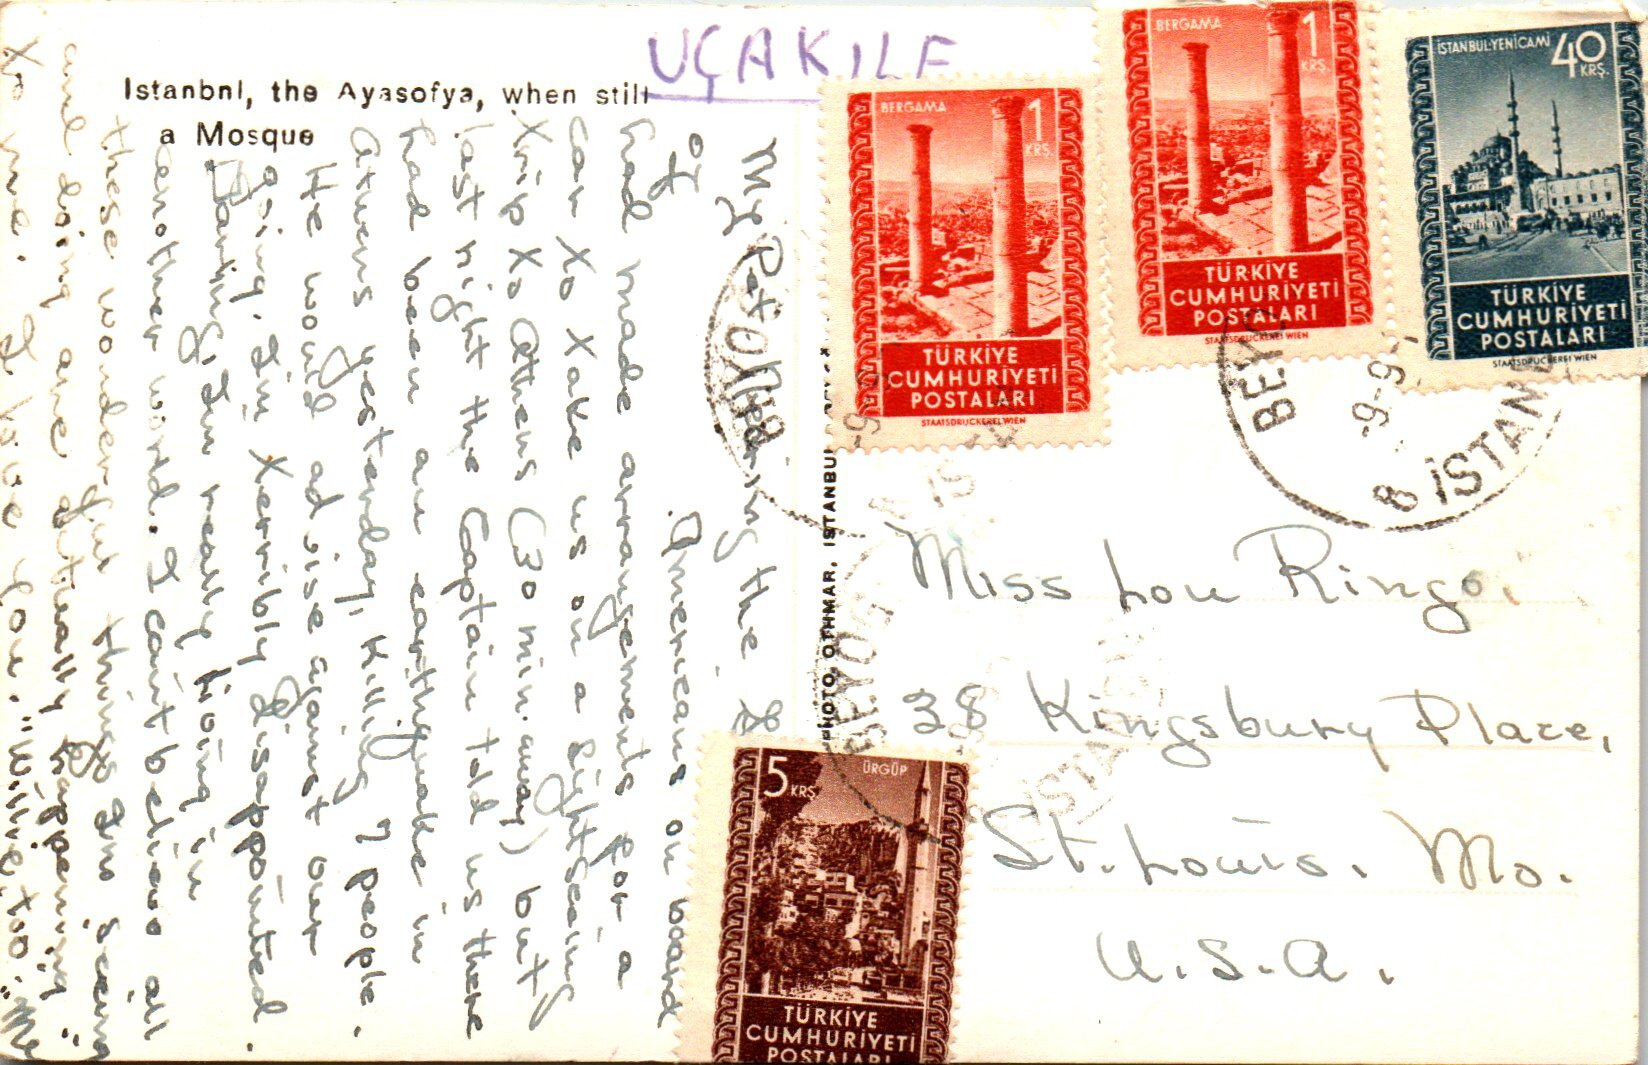 UÇAK ILE
Istanbnl, the Ayasofya, when still
a Mosque
My Pet, Oypering the
of Americans on board
had made arrangements for a
car to take us on a sightseeing
trip to Athens (30 min. away) but
last night the Captain told us there
had been an earthquake in
Athens yesterday, killing 7 people.
He would advise against our
going. I'm terribly disappointed.
Darling, I'm really living in
another world. I can't believe all
these wonderful things I'm seeing
and doing are actually happening
to me. I love you. "Willie, too." Me
PHOTO, OTHMAR, ISTANBUL
BERGAMA
1
KRŞ.
TÜRKİYE
CUMHURİYETİ
POSTALARI
STAATSDRUCKEREI WIEN
BERGAMA
1
KRŞ.
TÜRKİYE
CUMHURİYETİ
POSTALARI
STAATSDRUCKEREI WIEN
İSTANBUL-YENİCAMİ
40
KRŞ.
TÜRKİYE
CUMHURİYETİ
POSTALARI
STAATSDRUCKEREI WIEN
5
KRŞ.
ÜRGÜP
TÜRKİYE
CUMHURİYETİ
POSTALARI
BEYO
-9-9-
8 İSTAN
BEYOĞLU
Miss Lou Ringo,
38 Kingsbury Place,
St. Louis. Mo.
U.S.A.